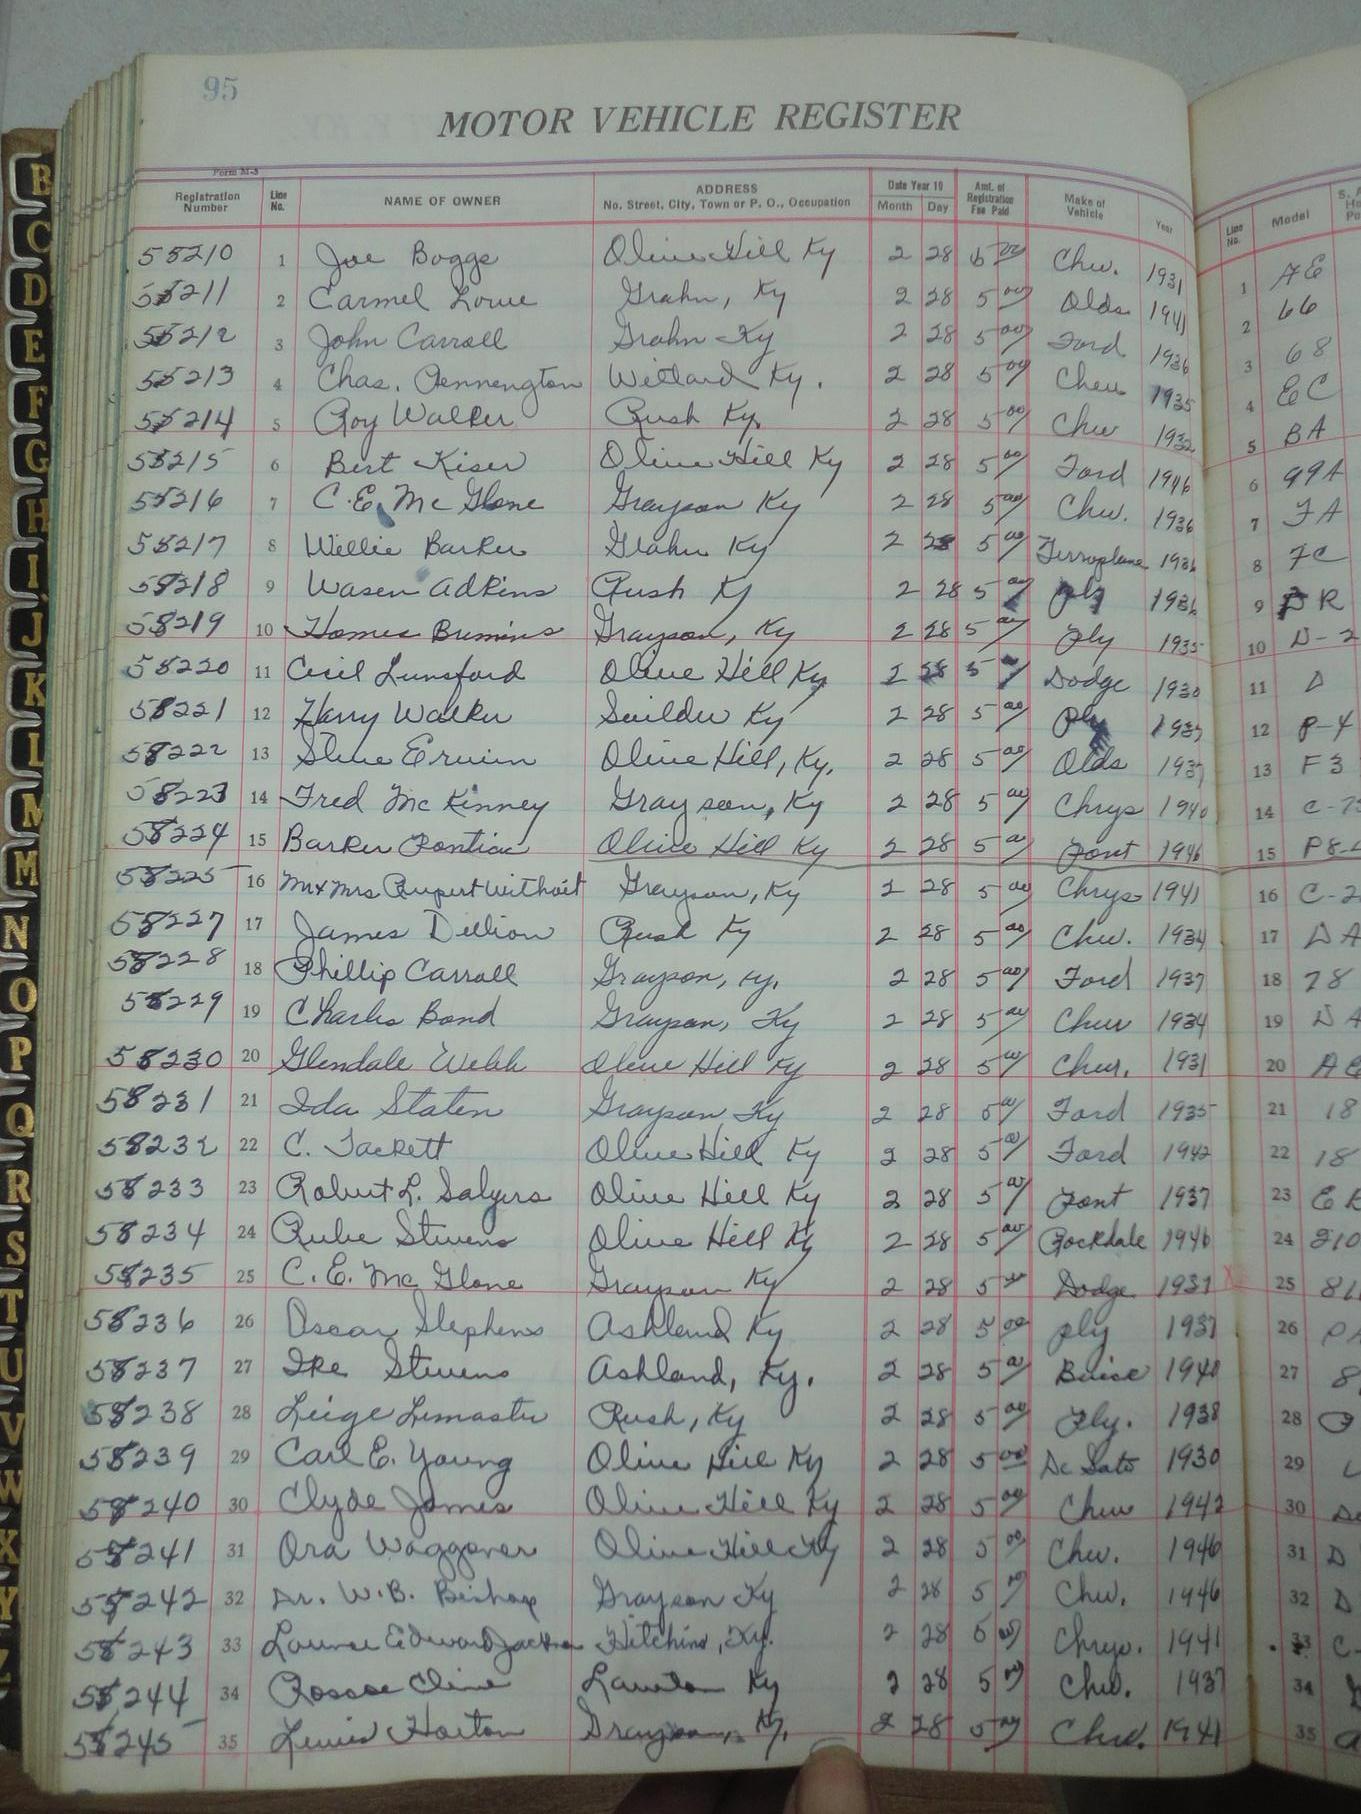 95
MOTOR VEHICLE REGISTER
Form M-3
Registration Number Line No. NAME OF OWNER ADDRESS No. Street, City, Town or P. O., Occupation Date Year 19 Month Day Amt. of Registration Fee Paid Make of Vehicle Year Line No. Model
58210 1 Joe Boggs Olive Hill Ky 2 28 5 00 Chev. 1931 1 AE
58211 2 Carmel Lowe Grahn, Ky 2 28 5 00 Olds 1941 2 66
58212 3 John Carroll Grahn Ky 2 28 5 00 Ford 1936 3 68
58213 4 Chas. Pennington Willard Ky. 2 28 5 00 Chev 1935 4 EC
58214 5 Roy Walker Rush Ky. 2 28 5 00 Chev 1932 5 BA
58215 6 Bert Kiser Olive Hill Ky 2 28 5 00 Ford 1946 6 99A
58216 7 C.E. McGlone Grayson Ky 2 28 5 00 Chev. 1936 7 FA
58217 8 Willie Barker Grahn Ky 2 28 5 00 Terroplane 1936 8 FC
58218 9 Wasen Adkins Rush Ky 2 28 5 00 Ply 1936 9 DR
58219 10 Homer Grayson, Ky 2 28 5 00 Ply 1935 10 D-2
58220 11 Cecil Lunsford Olive Hill Ky 2 28 5 Dodge 1930 11 D
58221 12 Harry Walker Ky 2 28 5 00 Ply 1937 12 P-4
58222 13 Steve Erwin Olive Hill, Ky. 2 28 5 00 Olds 1937 13 F3
58223 14 Fred McKinney Grayson, Ky 2 28 5 00 Chrys 1940 14
58224 15 Barker Pontiac Olive Hill Ky 2 28 5 00 Pont 1946 15
58225 16 Mr & Mrs. Rupert Grayson, Ky 2 28 5 00 Chrys 1941 16
58227 17 James Dillion Rush Ky 2 28 5 00 Chev. 1934 17 DA
58228 18 Phillip Carroll Grayson, Ky. 2 28 5 00 Ford 1937 18 78
58229 19 Charles Bond Grayson, Ky 2 28 5 00 Chev 1934 19 DA
58230 20 Glendale Webb Olive Hill Ky 2 28 5 00 Chev. 1931 20
58231 21 Ida Staten Grayson Ky 2 28 5 00 Ford 1935 21 18
58232 22 C. Tackett Olive Hill Ky 2 28 5 00 Ford 1942 22
58233 23 Robert L. Salyers Olive Hill Ky 2 28 5 00 Pont 1937 23
58234 24 Rube Stevens Olive Hill Ky 2 28 5 00 Rockdale 1946 24
58235 25 C. E. McGlone Grayson Ky 2 28 5 00 Dodge 1937 25
58236 26 Oscar Stephens Ashland Ky 2 28 5 00 Ply 1937 26
58237 27 Ike Stevens Ashland, Ky. 2 28 5 00 Buick 1940 27
58238 28 Leige Lemaster Rush, Ky 2 28 5 00 Ply. 1938 28
58239 29 Carl E. Young Olive Hill Ky 2 28 5 00 De Soto 1930 29
58240 30 Clyde James Olive Hill Ky 2 28 5 00 Chev 1942 30
58241 31 Ora Waggoner Olive Hill Ky 2 28 5 00 Chev. 1946 31 D
58242 32 Dr. W.B. Bishop Grayson Ky 2 28 5 00 Chev. 1946 32 D
58243 33 Edward Jackson Hitchins, Ky. 2 28 5 00 Chrys. 1941 33 C-
58244 34 Roscoe Cline Lawton Ky 2 28 5 00 Chev. 1937 34
58245 35 Lewis Horton Grayson, Ky. 2 28 5 00 Chev. 1941 35
B
C
D
E
F
G
H
I
J
K
L
M
M
N
O
P
Q
R
S
T
U
V
W
X
Y
Z